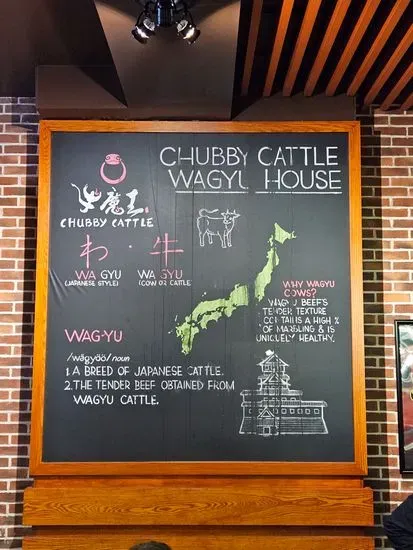 CHUBBY CATTLE
WAGYU HOUSE
牛魔王
CHUBBY CATTLE
わ・牛
WA GYU
(JAPANESE STYLE)
WA GYU
(COW OR CATTLE
WHY WAGYU
COWS?
WAGYU BEEF'S
TENDER TEXTURE
CONTAINS A HIGH %
OF MARBLING & IS
UNIQUELY HEALTHY.
WAG-YU
/wägyöö/noun
1. A BREED OF JAPANESE CATTLE.
2. THE TENDER BEEF OBTAINED FROM
WAGYU CATTLE.